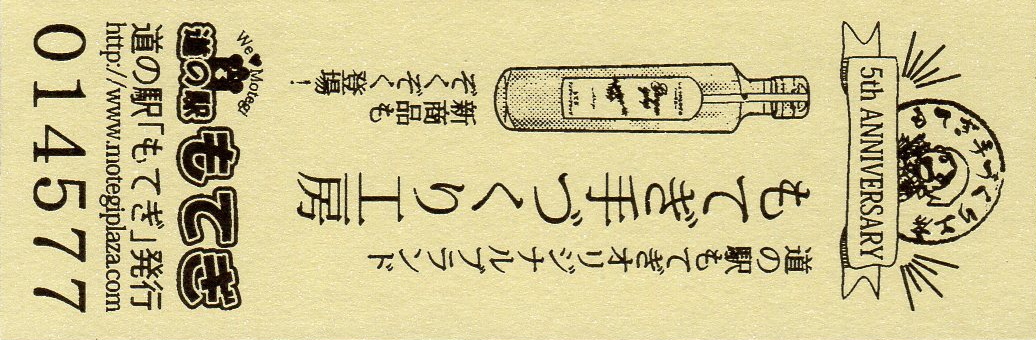 5th ANNIVERSARY
道の駅もてぎオリジナルブランド
もてぎ手づくり工房
新商品も
ぞくぞく登場!
We♥Motegi
道の駅
もてぎ
道の駅「もてぎ」発行
http://www.motegiplaza.com
014577